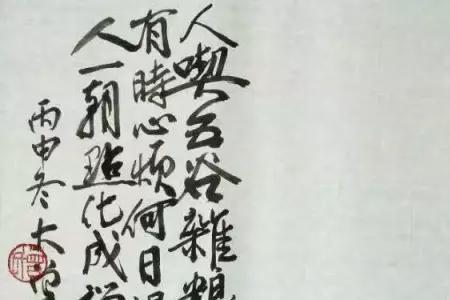 人喫五谷雜粮
有時心煩何日
人一朝點化成
丙申冬大